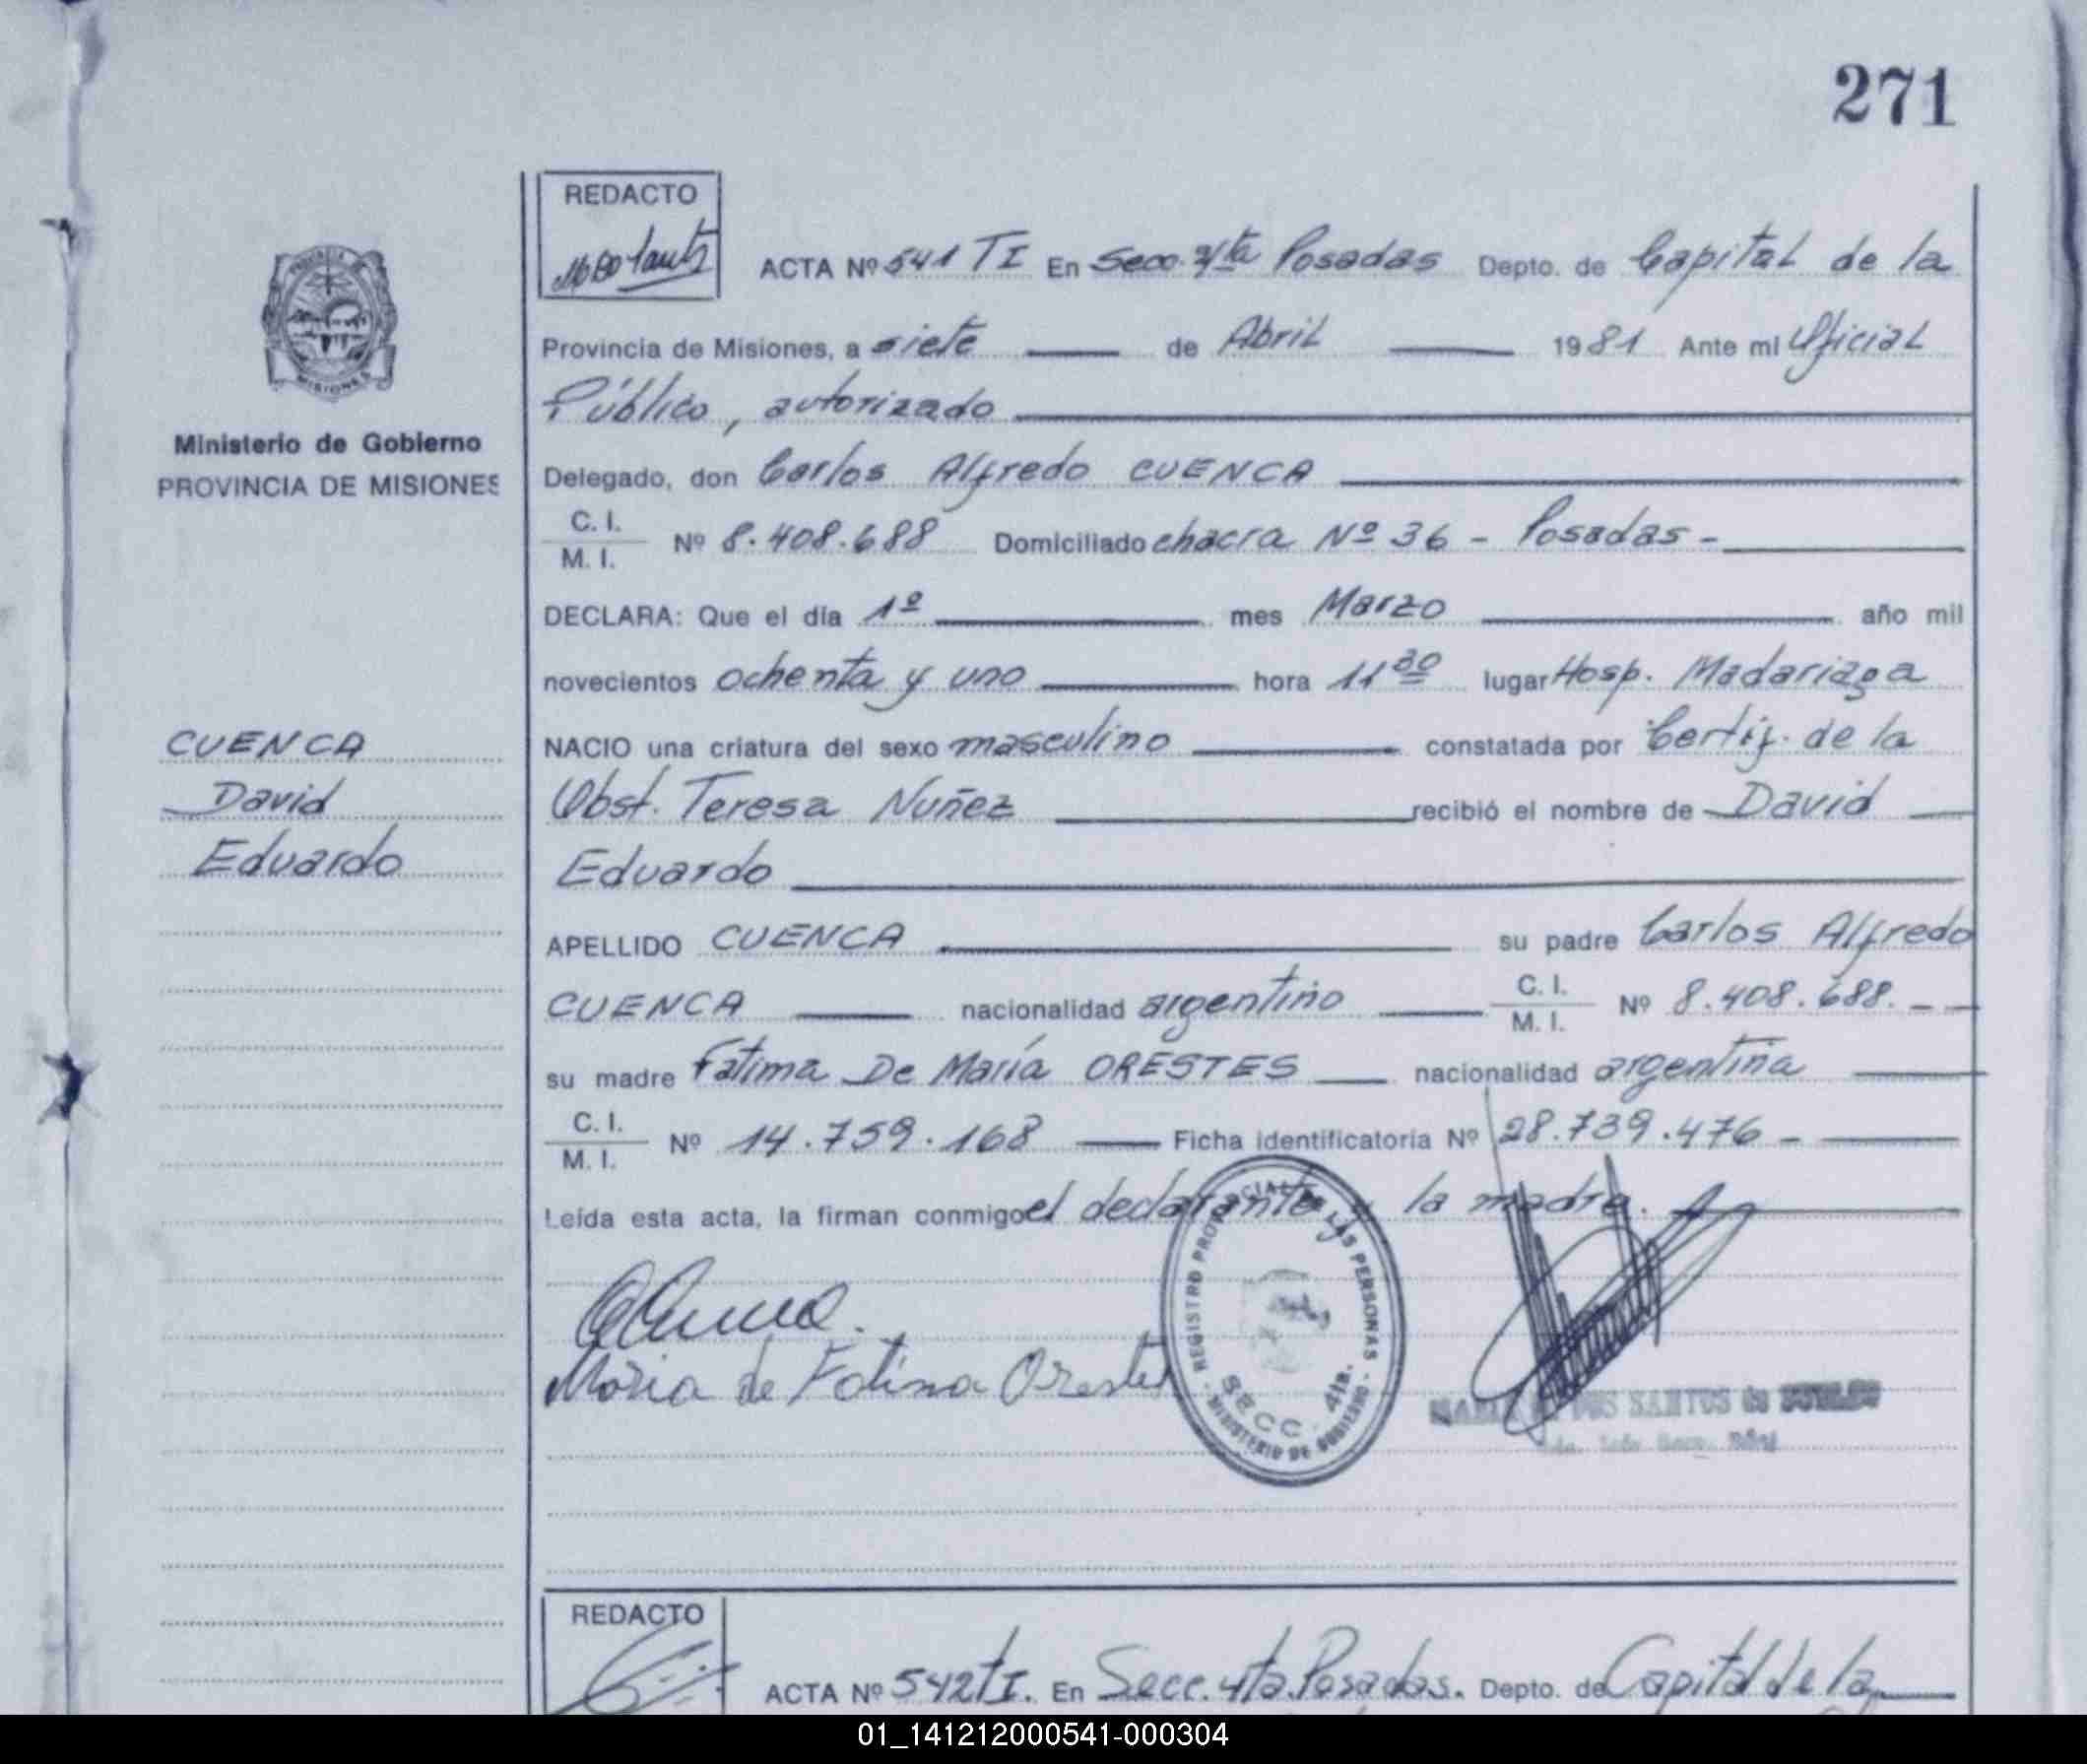 271
REDACTO
ACTA Nº 541 TI En Secc. 4ta Posadas Depto. de Capital de la
Provincia de Misiones, a siete de Abril 1981 Ante mí Oficial
Público, autorizado
Ministerio de Gobierno
PROVINCIA DE MISIONES
Delegado, don Carlos Alfredo CUENCA
C. I.
M. I. Nº 8.408.688 Domiciliado chacra Nº 36 - Posadas -
DECLARA: Que el día 1º mes Marzo año mil
novecientos ochenta y uno hora 11 30 lugar Hosp. Madariaga
CUENCA
David
Eduardo
NACIO una criatura del sexo masculino constatada por Certif. de la
Obst. Teresa Nuñez recibió el nombre de David
Eduardo
APELLIDO CUENCA su padre Carlos Alfredo
CUENCA nacionalidad argentino C. I. M. I. Nº 8.408.688. -
su madre Fátima De María ORESTES nacionalidad argentina
C. I.
M. I. Nº 14.759.168 Ficha identificatoria Nº 28.739.476 -
Leída esta acta, la firman conmigo el declarante y la madre.
María de Fatima Orestes
REGISTRO PROVINCIAL DE LAS PERSONAS
SECC. 4ta.
MINISTERIO DE GOBIERNO
DOS SANTOS de
REDACTO
ACTA Nº 542 TI. En Secc. 4ta. Posadas. Depto. de Capital de la
01_141212000541-000304